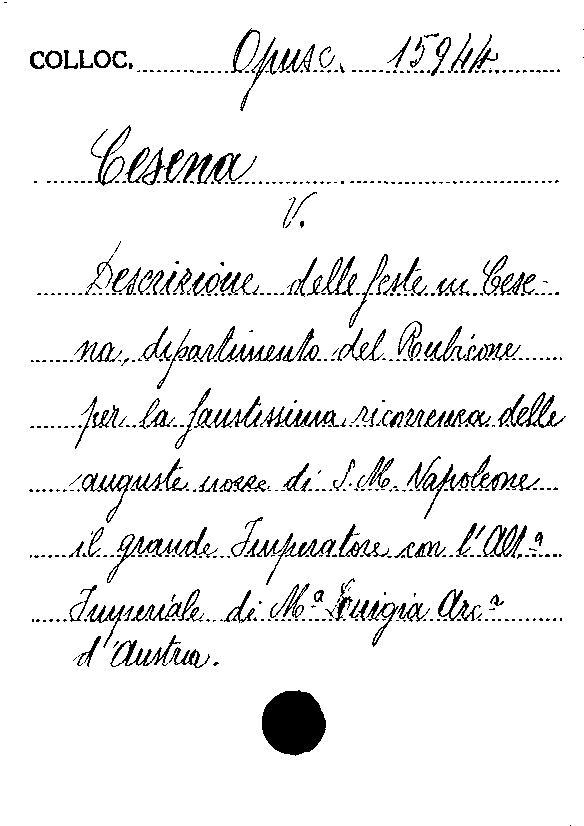 COLLOC. Opusc. 15944
Cesena
V.
Descrizione delle feste in Cese-
na, dipartimento del Rubicone
per la faustissima ricorrenza delle
auguste nozze di S. M. Napoleone
il grande Imperatore con l'Alt.a
Imperiale di M.a Luigia Arc.a
d'Austria.